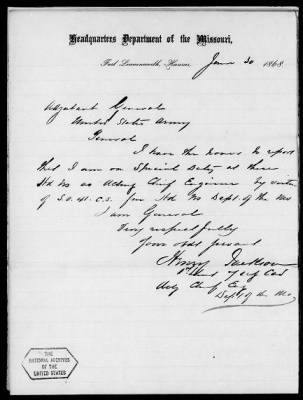 Headquarters Department of the Missouri,
Fort Leavenworth, Kansas, June 30 1868
Adjutant General
United States Army
General
I have the honor to report
that I am on Special Duty at these
Hd Qrs as Acting Chief Engineer by virtue
of S.O. 41. C.S. from Hd Qrs Dept. of the Mo
I am General
Very respectfully
Your obdt servant
Henry Jackson
1st Lieut 7th Cav
Actg Chief Eng
Dept of the Mo.
THE
NATIONAL ARCHIVES
OF THE
UNITED STATES